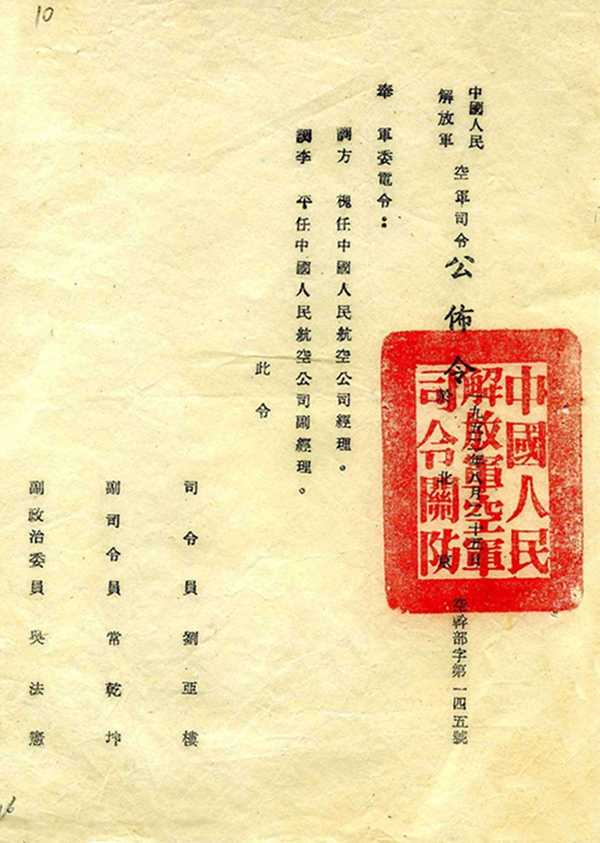 10
中國人民
解放軍
空軍司令
公佈令
一九五二年八月二十五日
於北京
空幹部字第一四五號
中國人民
解放軍空軍
司令關防
奉 軍委電令：
調方 槐任中國人民航空公司經理。
調李 平任中國人民航空公司副經理。
此令
司令員劉亞樓
副司令員常乾坤
副政治委員吳法憲